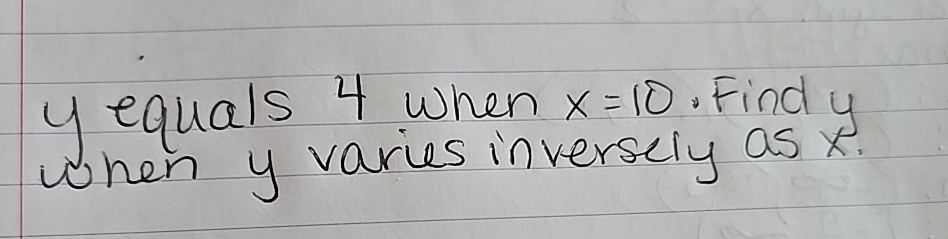 y equals 4 when x=10. Find y
when y varies inversely as x.